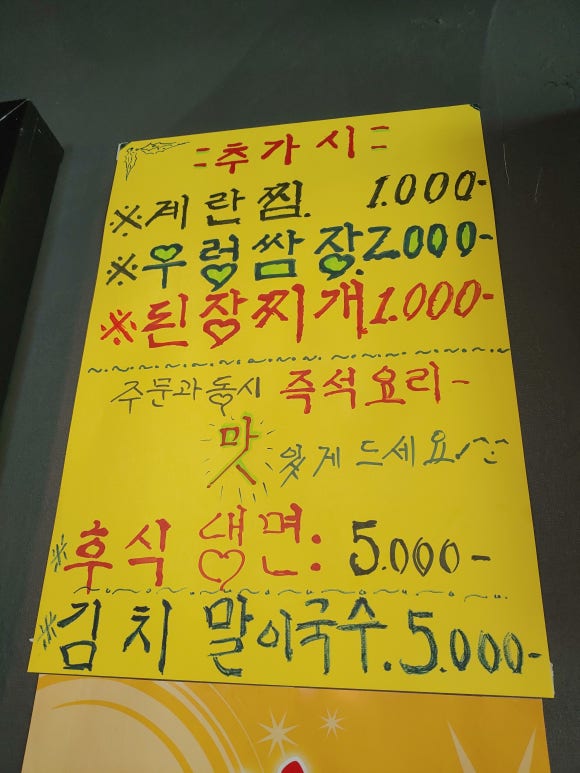 =추가시=
※계란찜. 1.000-
※우렁쌈장. 2.000-
※된장찌개. 1.000-
주문과동시 즉석요리-
맛
있게 드세요
※후식 냉면: 5.000-
※김치 말이국수. 5.000-